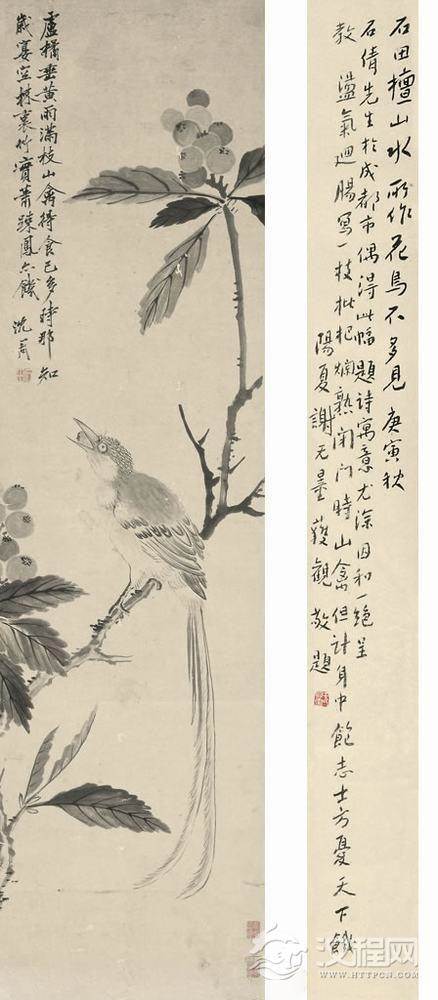 盧橘垂黄雨滿枝山禽得食已多時那知
歲宴空林裏竹實蕭踈鳳亦饑 沈周
石田檀山水所作花鳥不多見 庚寅秋
石倩先生於成都市偶得此幅題詩寓意尤深因和一絶呈
教 盪氣迴腸寫一枝枇杷爛熟閉門時山禽但計身中飽志士方憂天下饑
陽夏謝无量 觀敬題
汉程网
WWW.HTTPCN.COM